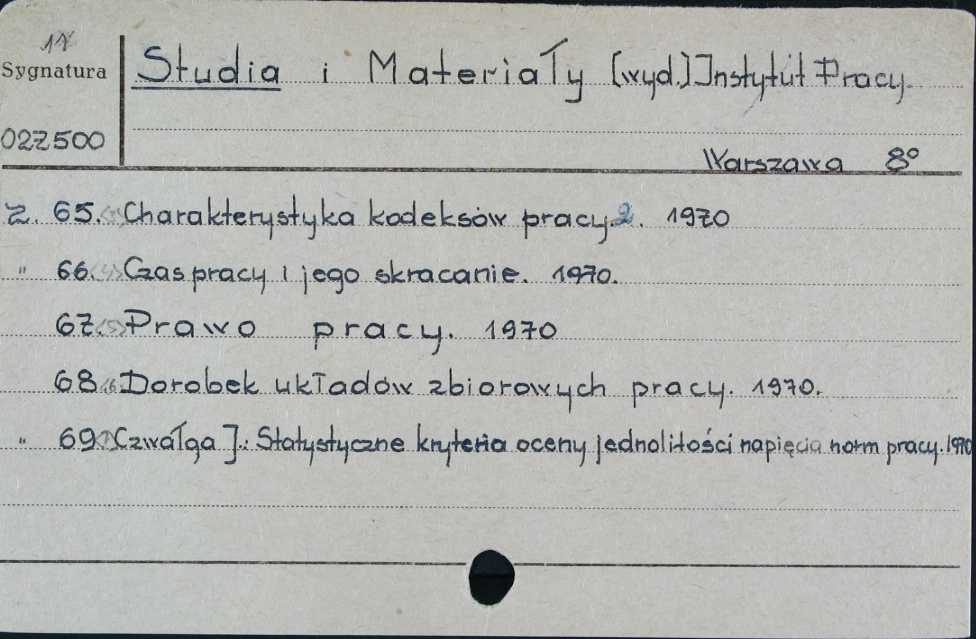 17
Sygnatura
Studia i Materiały [wyd.] Instytut Pracy.
02Z500
Warszawa 8°
Z. 65. Charakterystyka kodeksów pracy. 2. 1970
" 66. (4) Czas pracy i jego skracanie. 1970.
67. (5) Prawo pracy. 1970
68 (6 Dorobek układów zbiorowych pracy. 1970.
" 69 Czwałga J.: Statystyczne kryteria oceny jednolitości napięcia norm pracy. 1970